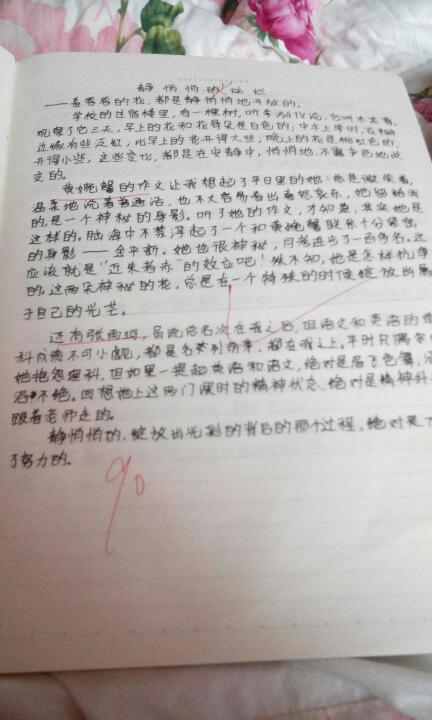 静悄悄的灿烂
——孟春春的花，都是静悄悄地开放的。
学校的住宿楼里，有一棵树，听
观察了它三天，早上的花和花骨朵是白色的；中午上学时，花瓣
边缘有些泛红，比早上的花开得大些；晚上的花是桃红色的，
开得小些，这些变化，都是在安静中，悄悄地，不露声色地改
变的。
黄婉馨的作文让我想起了平日里的她：总是微笑着，
温柔地说着普通话，也不大容易看出喜怒哀乐，她留给我
的，是一个神秘的身影。听了她的作文，才知道，其实她是
这样的。脑海中不禁浮起了一个和黄婉馨联系十分紧密
的身影——金平新。她也很神秘，月考进步了一百多名。这
应该就是“近朱者赤”的效应吧！殊不知，她是怎样抗争
的。这两朵神秘的花，总是在一个特殊的时候绽放出属
于自己的光芒。
还有张雨珂，虽说总名次在我之后，但语文和英语的单
科成绩不可小觑，都是名列前茅，都在我之上。平时只偶尔
她抱怨理科，但如果一提起英语和语文，绝对是眉飞色舞，滔
滔不绝。回想她上这两门课时的精神状态，绝对是精神抖
跟着老师走的。
静悄悄的，绽放出光彩的背后的那个过程，绝对是
了努力的。
90